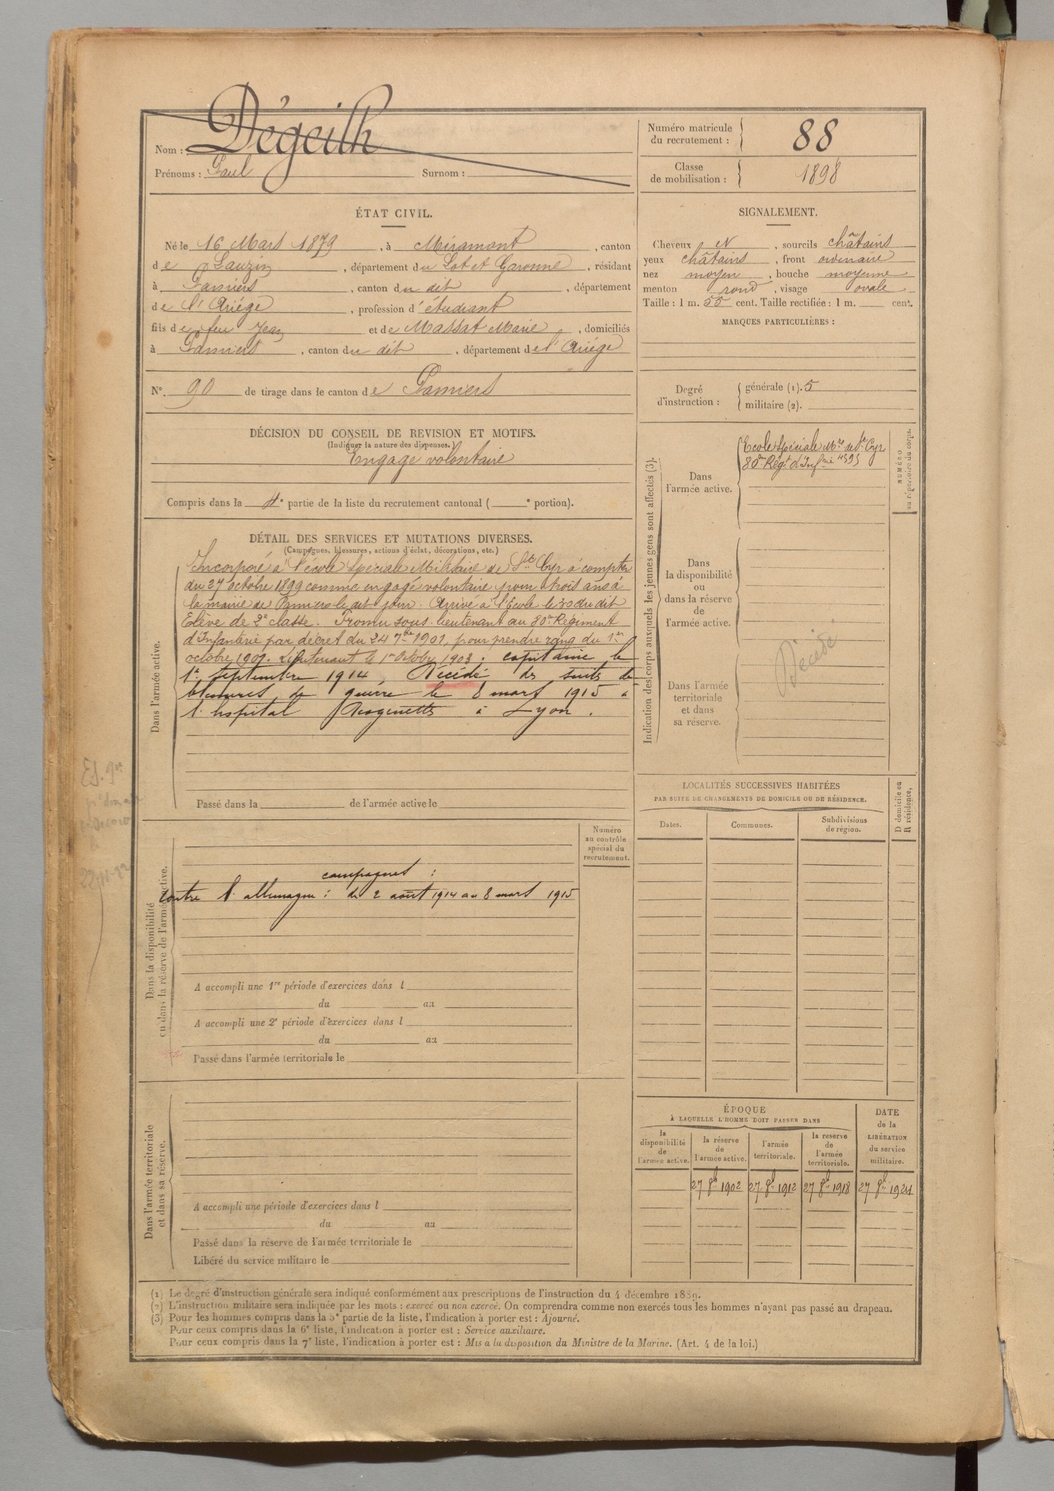 Nom : Dégeilh
Prénoms : Paul Surnom :
Numéro matricule du recrutement : 88
Classe de mobilisation : 1898
ÉTAT CIVIL.
Né le 16 Mars 1879, à Miramont, canton
de Lauzun, département du Lot et Garonne, résidant
à Pamiers, canton du dit, département
de l'Ariége, profession d'étudiant
fils de feu Jean et de Massat Marie, domiciliés
à Pamiers, canton du dit, département de l'Ariége
N° 90 de tirage dans le canton de Pamiers
SIGNALEMENT.
Cheveux et, sourcils châtains
yeux châtains, front ordinaire
nez moyen, bouche moyenne
menton rond, visage ovale
Taille : 1 m. cent. Taille rectifiée : 1 m. cent.
MARQUES PARTICULIÈRES :
Degré d'instruction : générale (1). 5
militaire (2).
DÉCISION DU CONSEIL DE REVISION ET MOTIFS.
(Indiquer la nature des dispenses.)
Engagé volontaire
Compris dans la 4e partie de la liste du recrutement cantonal ( e portion).
DÉTAIL DES SERVICES ET MUTATIONS DIVERSES.
(Campagnes, blessures, actions d'éclat, décorations, etc.)
Dans l'armée active.
Incorporé à l'école Spéciale Militaire de St Cyr à compter
du 27 octobre 1899 comme engagé volontaire pour trois ans à
la mairie de Pamiers le dit jour. Arrivé à l'Ecole le 30 du dit
Elève de 2e classe. Promu sous-lieutenant au 80e Régiment
d'Infanterie par décret du 24 7bre 1901, pour prendre rang du 1er
octobre 1901. Lieutenant le 1er Octobre 1903. capitaine le
1er septembre 1914, Décédé des suites de
blessures de guerre le 8 mars 1915 à
l'hopital Desgenettes à Lyon.
Passé dans la de l'armée active le
Indication des corps auxquels les jeunes gens sont affectés (3).
NUMÉRO au répertoire du corps.
Dans l'armée active.
Ecole Spéciale Mre de St Cyr
80e Régt d'Infrie
Dans la disponibilité ou dans la réserve de l'armée active.
Décédé
Dans l'armée territoriale et dans sa réserve.
LOCALITÉS SUCCESSIVES HABITÉES
PAR SUITE DE CHANGEMENTS DE DOMICILE OU DE RÉSIDENCE.
Dates. Communes. Subdivisions de région.
D domicile ou R résidence.
Numéro au contrôle spécial du recrutement.
Dans la disponibilité ou dans la réserve de l'armée active.
campagnes :
contre l'allemagne : du 2 août 1914 au 8 mars 1915
A accompli une 1re période d'exercices dans l
du au
A accompli une 2e période d'exercices dans l
du au
Passé dans l'armée territoriale le
Dans l'armée territoriale et dans sa réserve.
A accompli une période d'exercices dans l
du au
Passé dans la réserve de l'armée territoriale le
Libéré du service militaire le
ÉPOQUE
À LAQUELLE L'HOMME DOIT PASSER DANS
la disponibilité de l'armée active. la réserve de l'armée active. l'armée territoriale. la réserve de l'armée territoriale.
DATE de la LIBÉRATION du service militaire.
27 8bre 1902 27 8bre 1912 27 8bre 1918 27 8bre 1924
(1) Le degré d'instruction générale sera indiqué conformément aux prescriptions de l'instruction du 4 décembre 1889.
(2) L'instruction militaire sera indiquée par les mots : exercé ou non exercé. On comprendra comme non exercés tous les hommes n'ayant pas passé au drapeau.
(3) Pour les hommes compris dans la 5e partie de la liste, l'indication à porter est : Ajourné.
Pour ceux compris dans la 6e liste, l'indication à porter est : Service auxiliaire.
Pour ceux compris dans la 7e liste, l'indication à porter est : Mis à la disposition du Ministre de la Marine. (Art. 4 de la loi.)